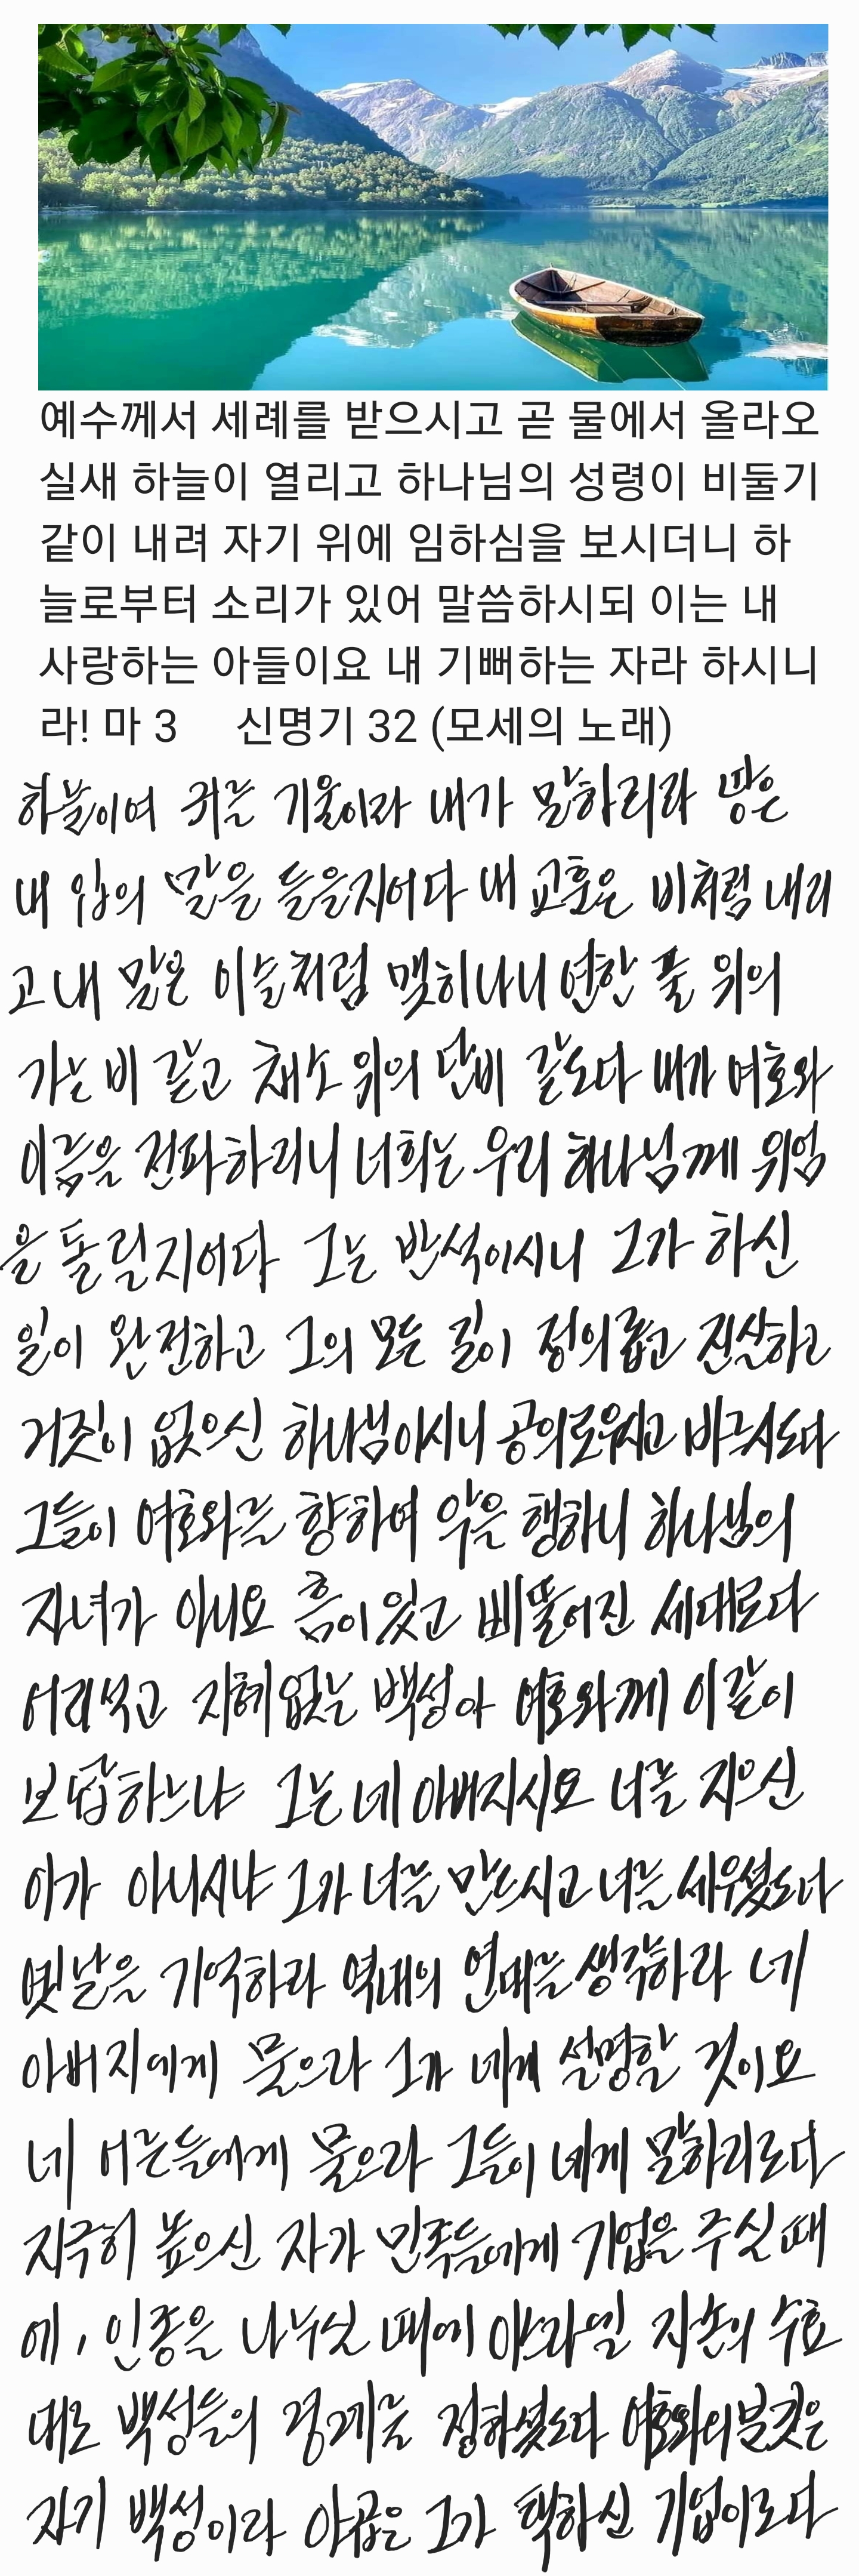 예수께서 세례를 받으시고 곧 물에서 올라오
실새 하늘이 열리고 하나님의 성령이 비둘기
같이 내려 자기 위에 임하심을 보시더니 하
늘로부터 소리가 있어 말씀하시되 이는 내
사랑하는 아들이요 내 기뻐하는 자라 하시니
라! 마 3 신명기 32 (모세의 노래)
하늘이여 귀를 기울이라 내가 말하리라 땅은
내 입의 말을 들을지어다 내 교훈은 비처럼 내리
고 내 말은 이슬처럼 맺히나니 연한 풀 위의
가는 비 같고 채소 위의 단비 같도다 내가 여호와
이름을 전파하리니 너희는 우리 하나님께 위엄
을 돌릴지어다 그는 반석이시니 그가 하신
일이 완전하고 그의 모든 길이 정의롭고 진실하고
거짓이 없으신 하나님이시니 공의로우시고 바르시도다
그들이 여호와를 향하여 악을 행하니 하나님의
자녀가 아니요 흠이 있고 삐뚤어진 세대로다
어리석고 지혜없는 백성아 여호와께 이같이
보답하느냐 그는 네 아버지시요 너를 지으신
이가 아니시냐 그가 너를 만드시고 너를 세우셨도다
옛날을 기억하라 역대의 연대를 생각하라 네
아버지에게 물으라 그가 네게 설명할 것이요
네 어른들에게 물으라 그들이 네게 말하리로다
지극히 높으신 자가 민족들에게 기업을 주실 때
에, 인종을 나누실 때에 이스라엘 자손의 수효
대로 백성들의 경계를 정하셨도다 여호와의 분깃은
자기 백성이라 야곱은 그가 택하신 기업이로다